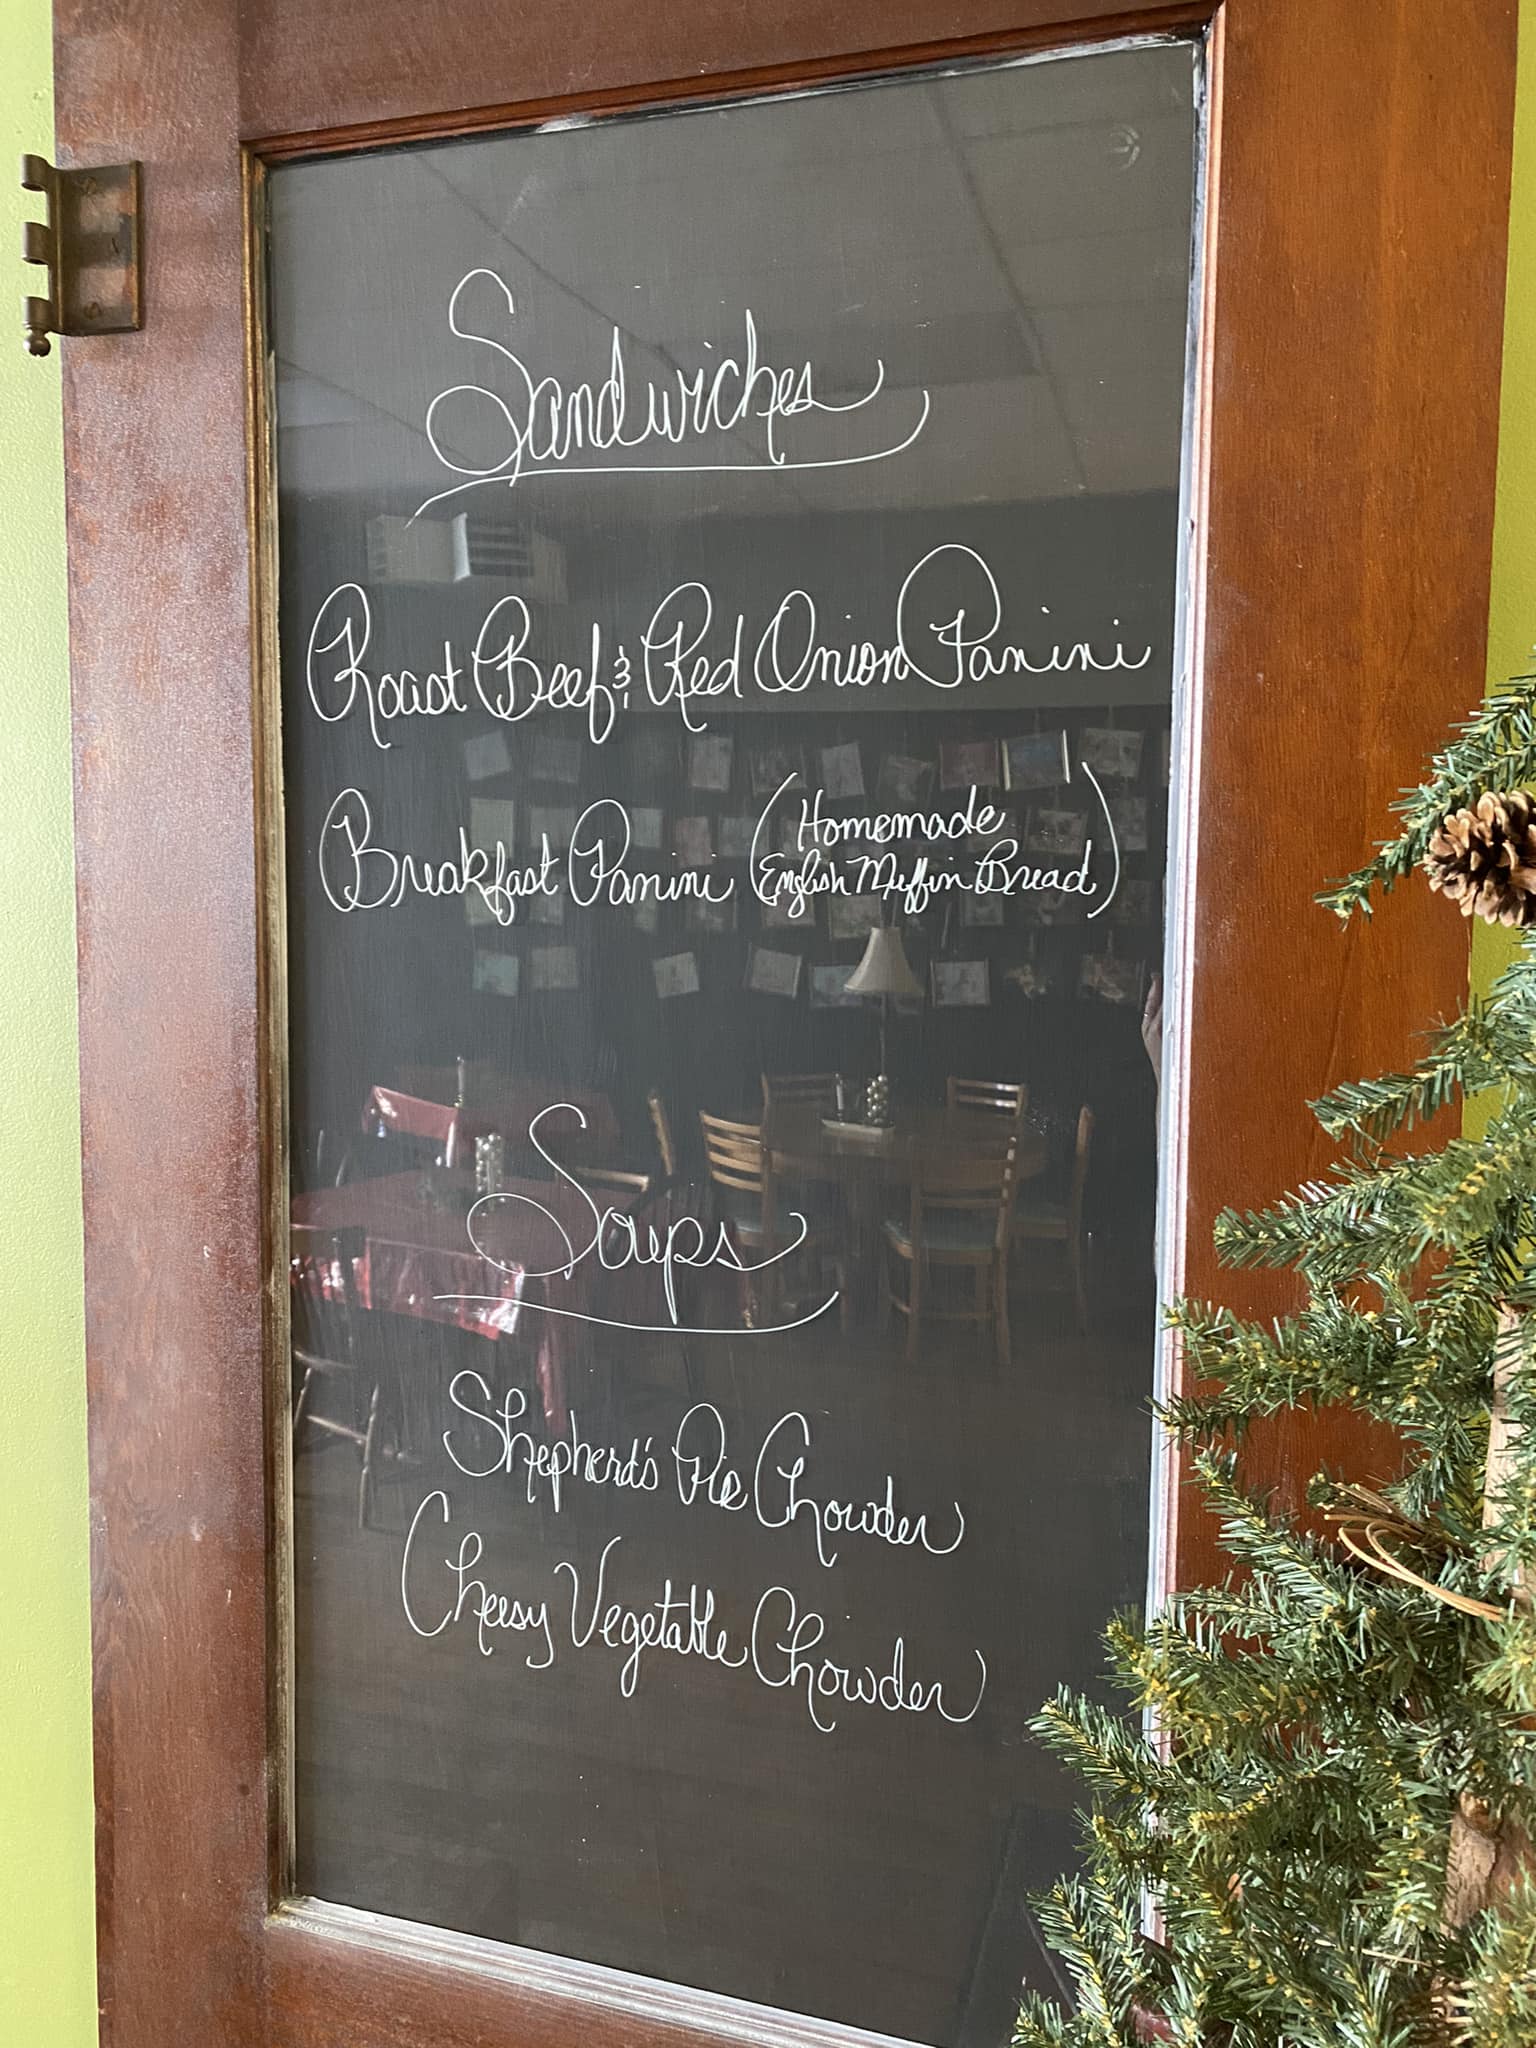 Sandwiches
Roast Beef & Red Onion Panini
Breakfast Panini (Homemade
English Muffin Bread)
Soups
Shepherd's Pie Chowder
Cheesy Vegetable Chowder